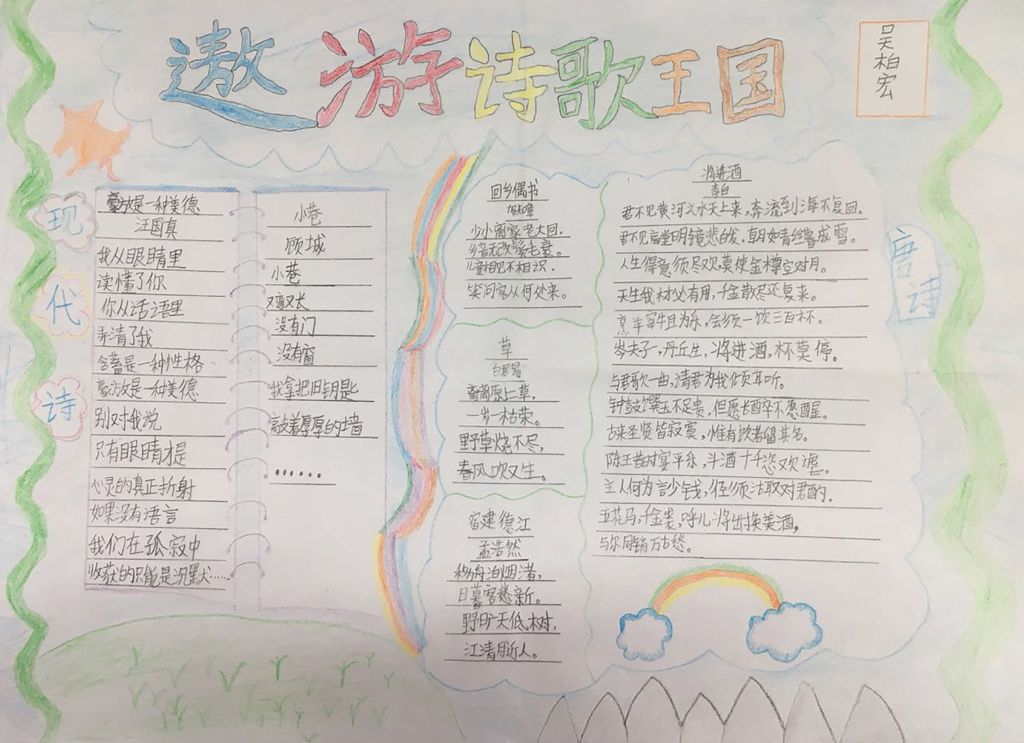 遨游诗歌王国
吴柏宏
现代诗
豪放是一种美德
汪国真
我从眼睛里
读懂了你
你从话语里
弄清了我
含蓄是一种性格
豪放是一种美德
别对我说
只有眼睛才是
心灵的真正折射
如果没有语言
我们在孤寂中
收获的只能是沉默……
小巷
顾城
小巷
又弯又长
没有门
没有窗
我拿把旧钥匙
敲着厚厚的墙
……
回乡偶书
贺知章
少小离家老大回，
乡音无改鬓毛衰。
儿童相见不相识，
笑问客从何处来。
草
白居易
离离原上草，
一岁一枯荣。
野草烧不尽，
春风吹又生。
宿建德江
孟浩然
移舟泊烟渚，
日暮客愁新。
野旷天低树，
江清月近人。
唐诗
将进酒
李白
君不见黄河之水天上来，奔流到海不复回。
君不见高堂明镜悲白发，朝如青丝暮成雪。
人生得意须尽欢，莫使金樽空对月。
天生我材必有用，千金散尽还复来。
烹羊宰牛且为乐，会须一饮三百杯。
岑夫子，丹丘生，将进酒，杯莫停。
与君歌一曲，请君为我倾耳听。
钟鼓馔玉不足贵，但愿长醉不愿醒。
古来圣贤皆寂寞，惟有饮者留其名。
陈王昔时宴平乐，斗酒十千恣欢谑。
主人何为言少钱，径须沽取对君酌。
五花马，千金裘，呼儿将出换美酒，
与尔同销万古愁。